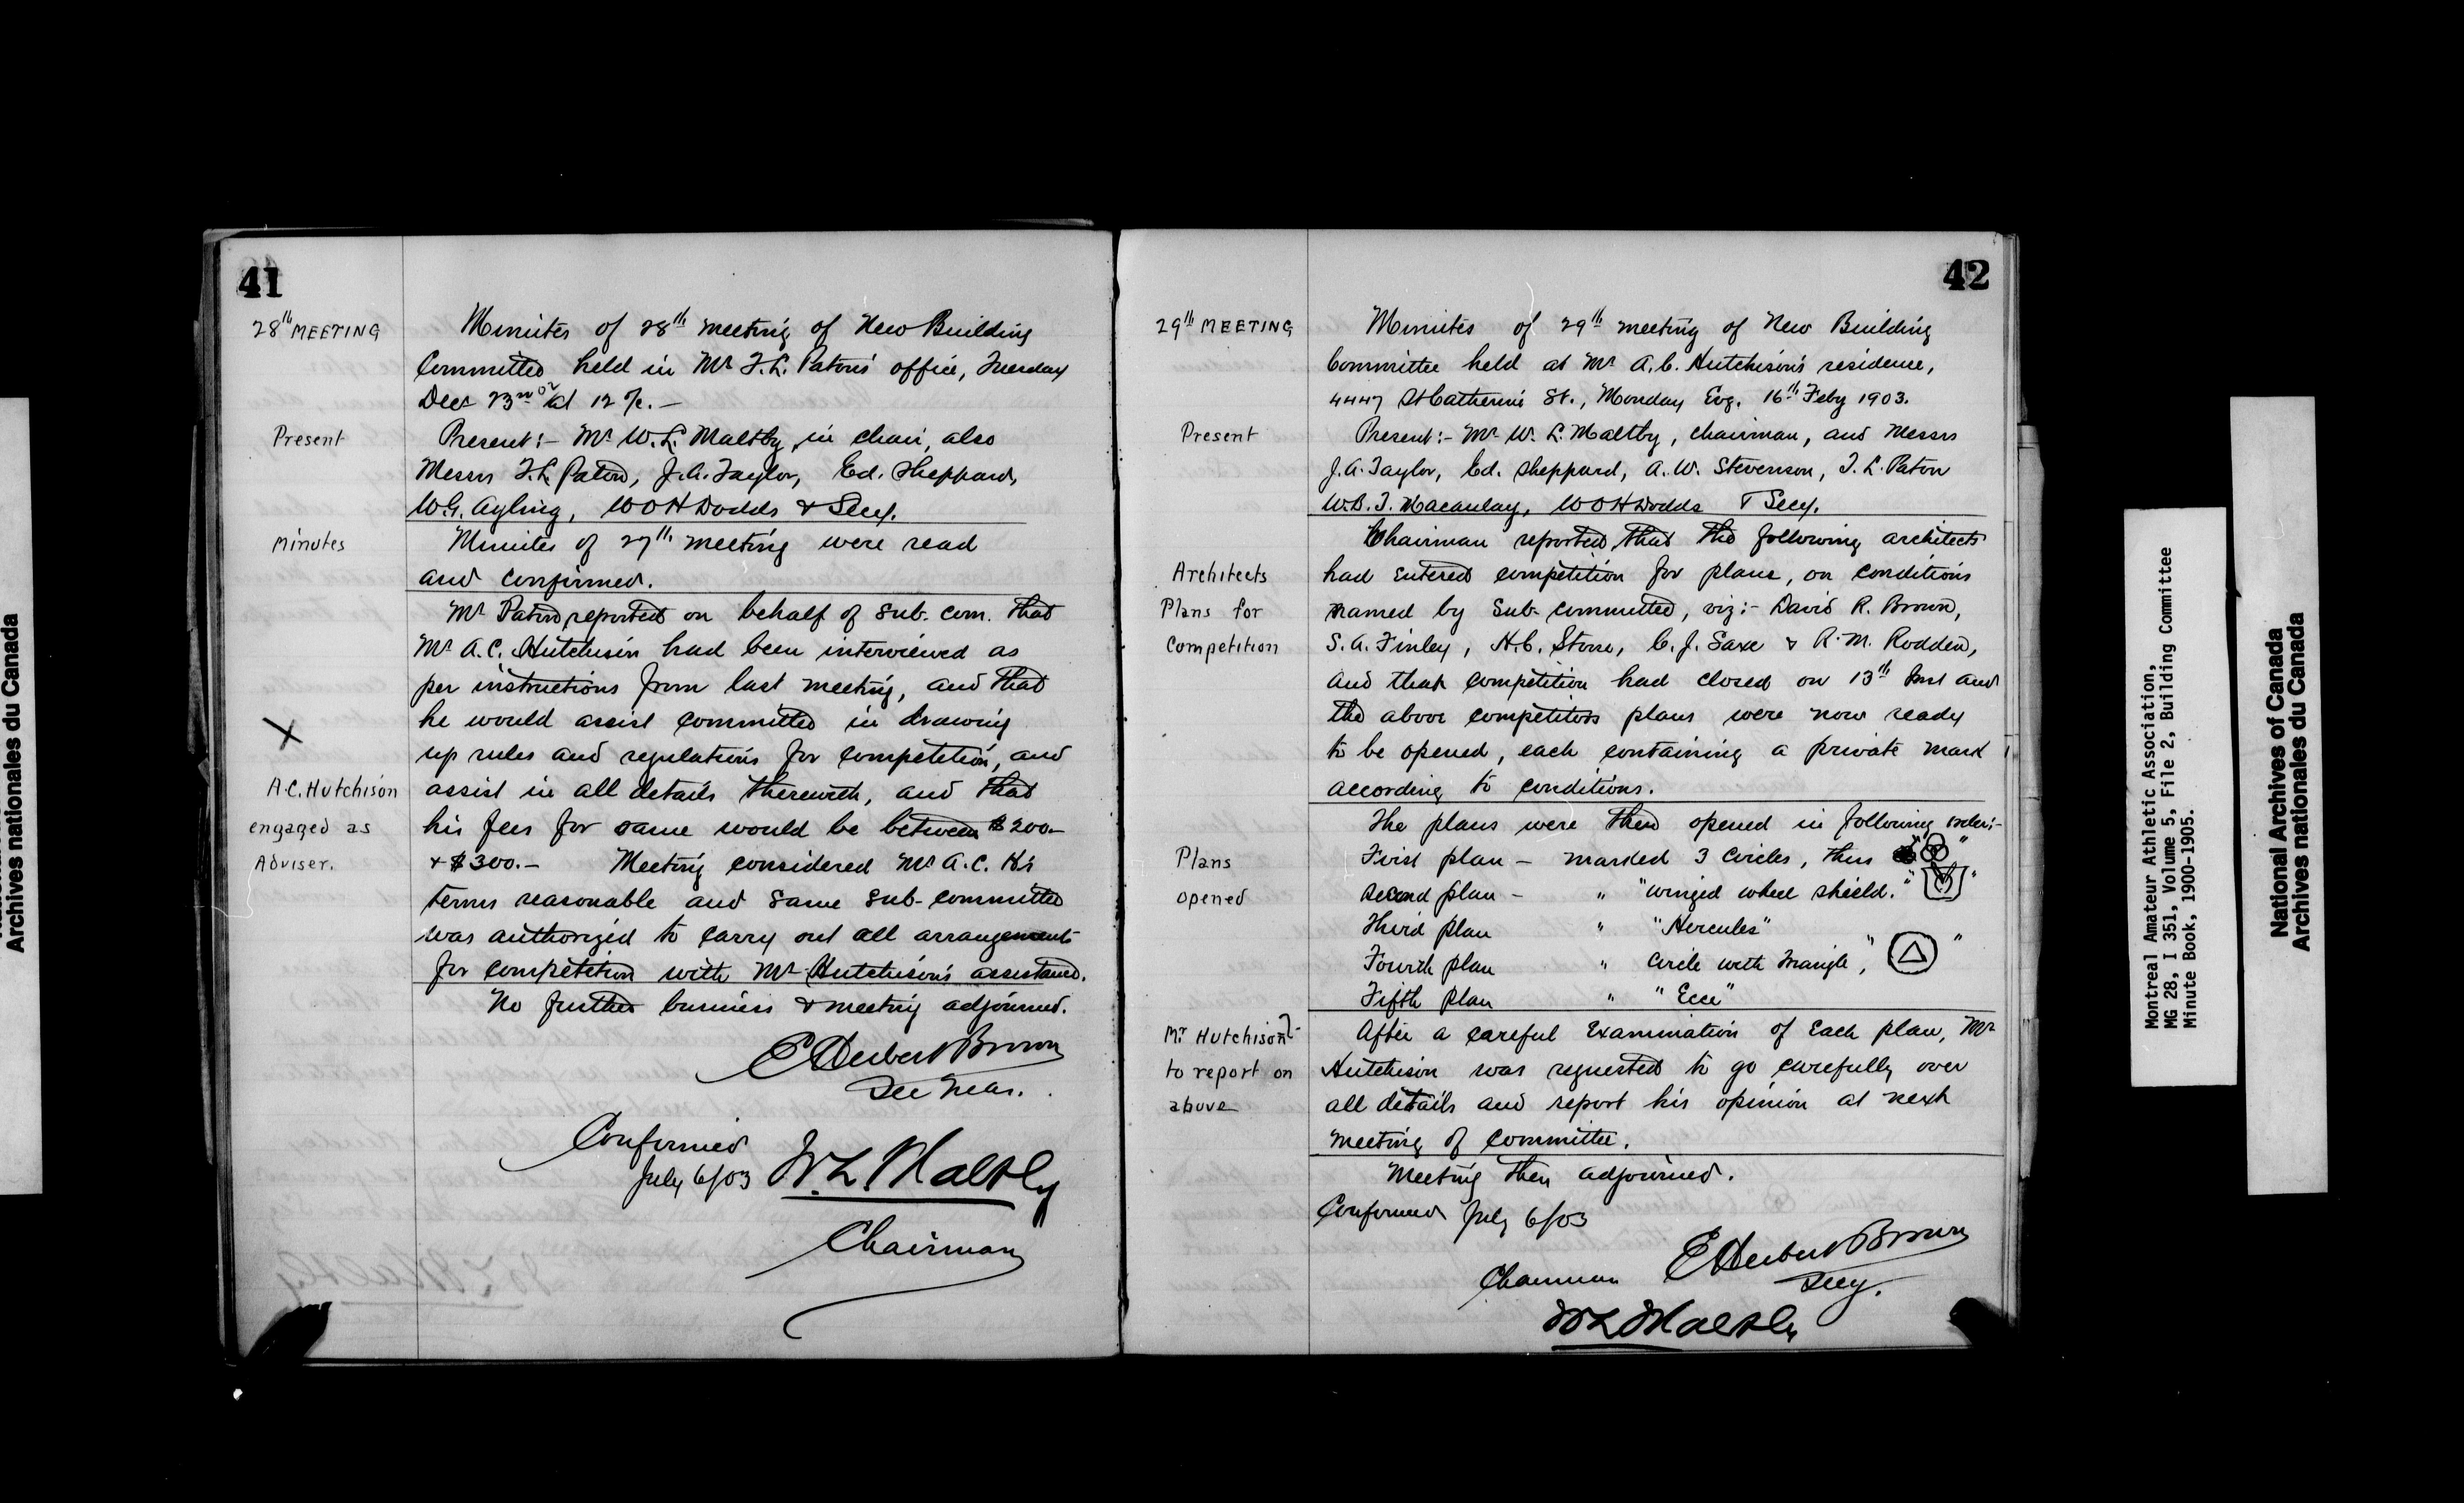 41
28th MEETING
Minutes of 28th meeting of New Building
Committee held in Mr T. L. Paton's office, Tuesday
Decr 23rd 02 at 12 o/c.—
Present
Present:— Mr W. L. Maltby in chair, also
Messrs T. L. Paton, J. A. Taylor, Ed. Sheppard,
W. G. Ayling, W O H Dodds & Secy.
Minutes
Minutes of 27th meeting were read
and confirmed.
Mr Paton reported on behalf of Sub. Com. that
Mr A. C. Hutchison had been interviewed as
per instructions from last meeting, and that
X
he would assist committee in drawing
up rules and regulations for competition, and
A. C. Hutchison
assist in all details therewith, and that
engaged as
his fees for same would be between $200.—
Adviser.
& $300.— Meeting considered Mr A. C. H's
terms reasonable and same sub-committee
was authorized to carry out all arrangements
for competition with Mr Hutchison's assistance.
No further business & meeting adjourned.
E Herbert Brown
Sec Treas.
Confirmed
July 6/03 W. L. Maltby
Chairman
42
29th MEETING
Minutes of 29th meeting of New Building
Committee held at Mr A. C. Hutchison's residence,
4447 St Catherine St., Monday Evg. 16th Feby 1903.
Present
Present:— Mr W. L. Maltby, chairman, and Messrs
J. A. Taylor, Ed. Sheppard, A. W. Stevenson, T. L. Paton
W. B. T. Macaulay, W O H Dodds & Secy.
Chairman reported that the following architects
Architects
had entered competition for plans, on conditions
Plans for
named by Sub-committee, viz:— David R. Brown,
Competition
S. A. Finley, H. C. Stone, C. J. Saxe & R. M. Rodden,
and that competition had closed on 13th Inst and
the above competitors plans were now ready
to be opened, each containing a private mark
according to conditions.
The plans were then opened in following order:—
Plans
First plan — marked 3 circles, thus " "
opened
Second plan — " "winged wheel shield." " "
Third plan " "Hercules"
Fourth plan " Circle with triangle, " "
Fifth plan " "Ecce"
Mr Hutchison
After a careful examination of each plan, Mr
to report on
Hutchison was requested to go carefully over
above
all details and report his opinion at next
meeting of committee.
Meeting then adjourned.
Confirmed July 6/03
E Herbert Brown
Secy.
Chairman
W L Maltby
Montreal Amateur Athletic Association,
MG 28, I 351, Volume 5, File 2, Building Committee
Minute Book, 1900-1905.
National Archives of Canada
Archives nationales du Canada
Archives nationales du Canada